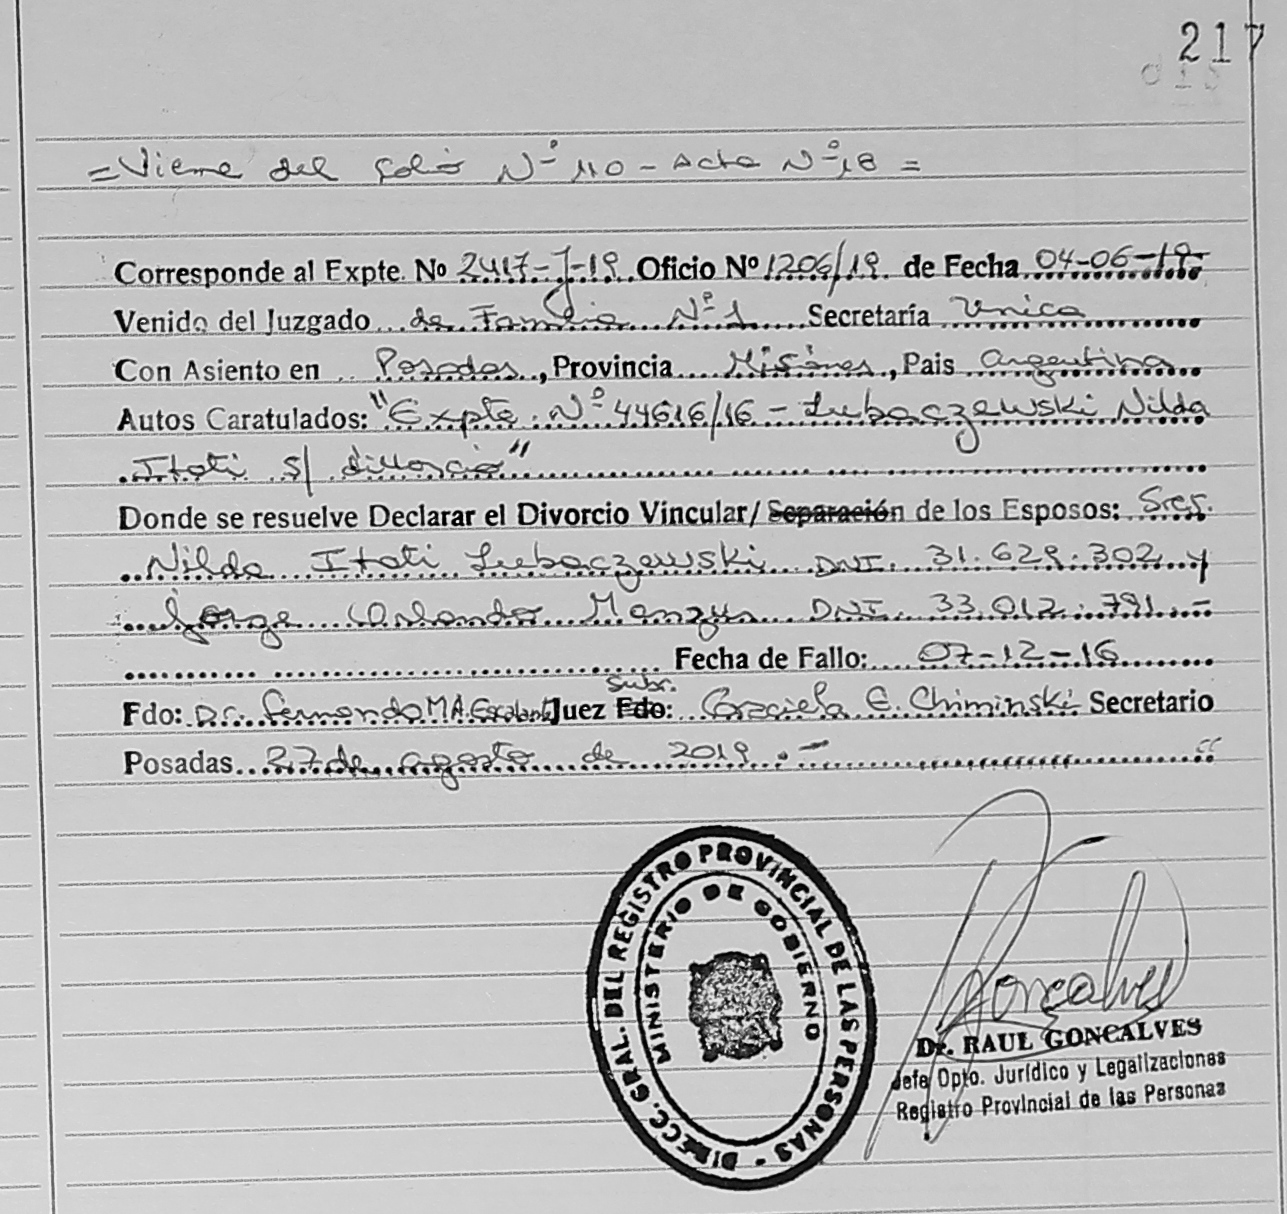 217
= Viene del folio Nº 110 - Acta Nº 18 =
Corresponde al Expte. Nº 2417-J-19 Oficio Nº 1206/19 de Fecha 04-06-19-
Venido del Juzgado de Familia Nº 1 Secretaría Unica
Con Asiento en Posadas, Provincia Misiones, Pais Argentina
Autos Caratulados: "Expte. Nº 44616/16 - Lubaczewski Nilda
Itati s/ divorcio"
Donde se resuelve Declarar el Divorcio Vincular/ Separación de los Esposos: Sres.
Nilda Itati Lubaczewski DNI. 31.629.302 y
Jorge Orlando Manzur DNI. 33.012.791.-
Fecha de Fallo: 07-12-16
Subr.
Fdo: Dr. Fernando M.A. Escalante Juez Fdo: Graciela E. Chiminski Secretario
Posadas 27 de agosto de 2019.-
DIRECC. GRAL. DEL REGISTRO PROVINCIAL DE LAS PERSONAS -
MINISTERIO DE GOBIERNO
Gonçalves
Dr. RAUL GONCALVES
Jefe Dpto. Jurídico y Legalizaciones
Registro Provincial de las Personas